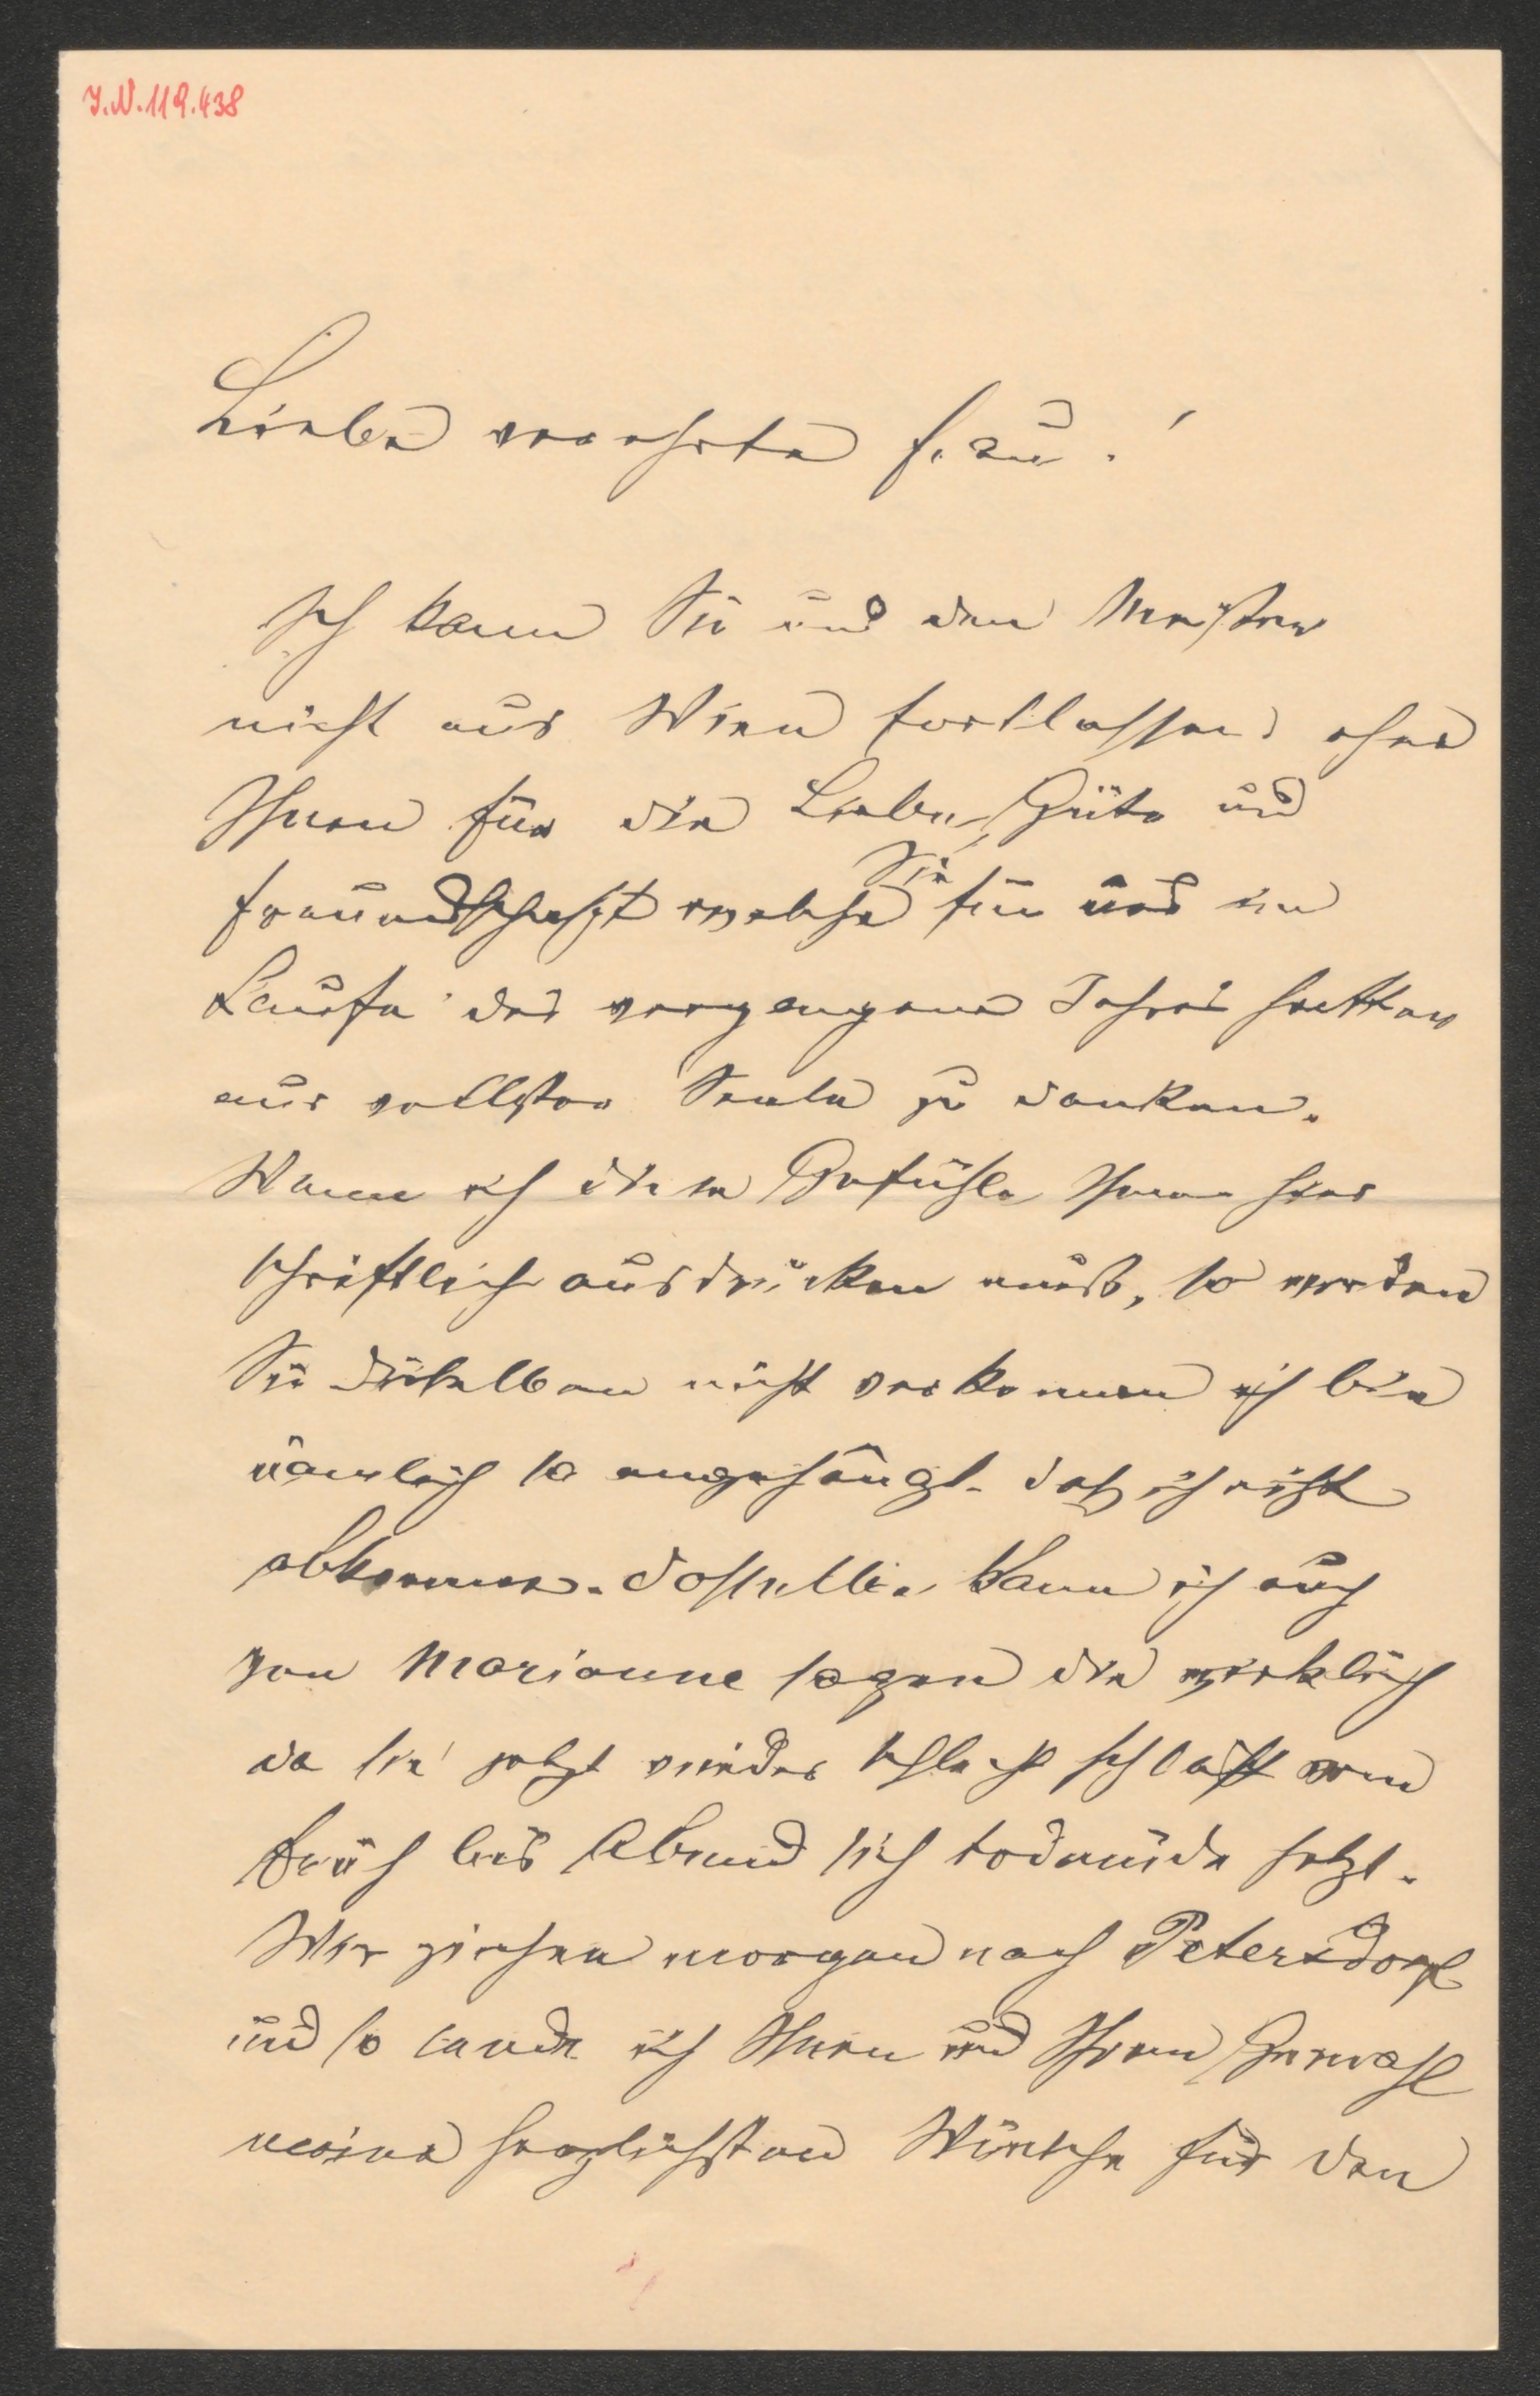 I.N. 119.438
Liebe verehrte Frau!
Ich kann Sie und den Meister
nicht aus Wien fortlassen ohne
Ihnen für die Liebe, Güte und
Freundschaft welche Sie für uns im
Laufe des vergangenen Jahres hatten
aus vollster Seele zu danken.
Wenn ich diese Gefühle Ihnen hier
schriftlich ausdrücken muß, so werden
Sie dieselben nicht verkennen ich bin
nämlich so angehängt daß ich nicht
abkomme. Dasselbe kann ich auch
von Marianne sagen die wirklich
da sie jetzt wieder schlecht schläft von
früh bis Abend sich todmüde hetzt.
Wir ziehen morgen nach Petersdorf
und so sende ich Ihnen und Ihrem Gemahl
meine herzlichsten Wünsche für den